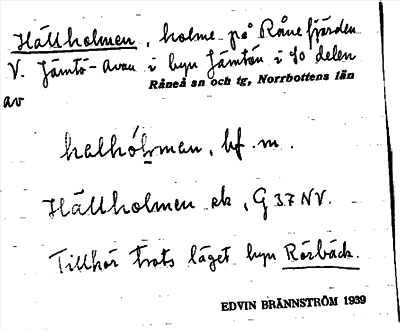 Hällholmen, holme på Rånefjärden
V. Jämtö-avan i byn Jämtön i SO delen
Råneå sn och tg, Norrbottens län
av
halhólman, bf. m.
Hällholmen ek, G 37 NV.
Tillhör trots läget byn Rörbäck.
EDVIN BRÄNNSTRÖM 1939